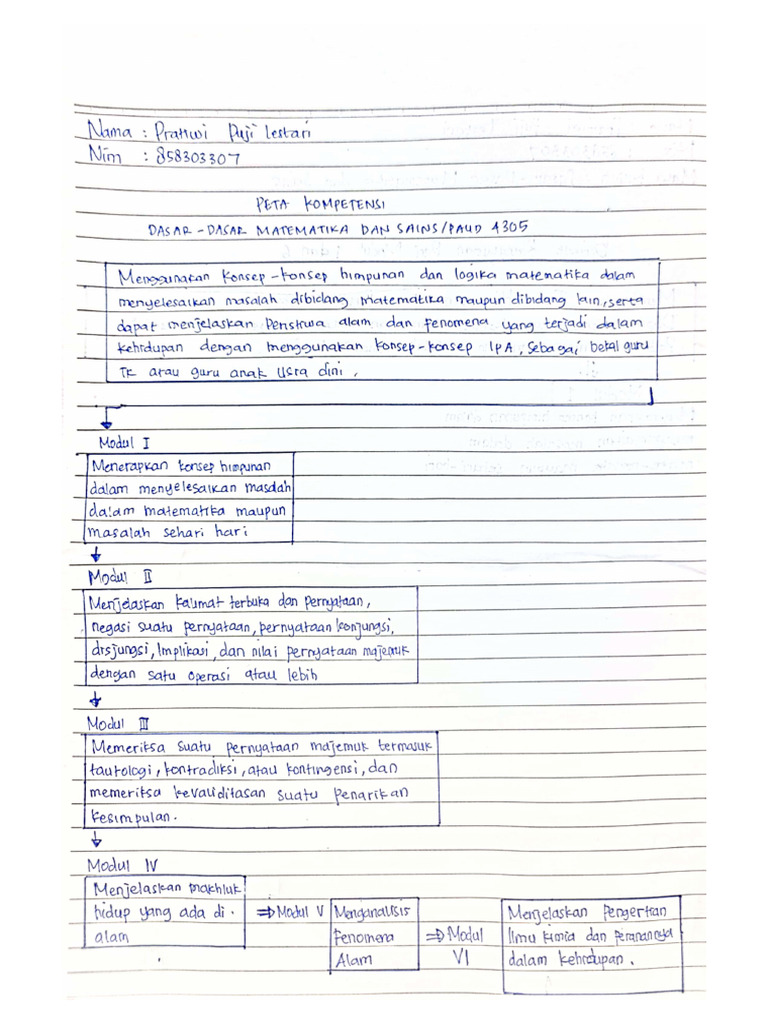 Nama : Pratiwi Puji lestari
Nim : 858303307
PETA KOMPETENSI
DASAR-DASAR MATEMATIKA DAN SAINS/PAUD 4305
Menggunakan Konsep-Konsep himpunan dan logika matematika dalam
menyelesaikan masalah dibidang matematika maupun dibidang lain, serta
dapat menjelaskan Peristiwa alam dan fenomena yang terjadi dalam
kehidupan dengan menggunakan konsep-konsep IPA, Sebagai bekal guru
TK atau guru anak Usia dini.
Modul I
Menerapkan konsep himpunan
dalam menyelesaikan masalah
dalam matematika maupun
masalah sehari hari
Modul II
Menjelaskan kalimat terbuka dan pernyataan,
negasi suatu pernyataan, pernyataan konjungsi,
disjungsi, Implikasi, dan nilai pernyataan majemuk
dengan satu operasi atau lebih
Modul III
Memeriksa suatu pernyataan majemuk termasuk
tautologi, kontradiksi, atau kontingensi, dan
memeriksa kevaliditasan suatu penarikan
kesimpulan.
Modul IV
Menjelaskan makhluk
hidup yang ada di.
alam
⇒ Modul V
Menganalisis
Fenomena
Alam
⇒ Modul
VI
Menjelaskan Pengertian
Ilmu kimia dan peranannya
dalam kehidupan.